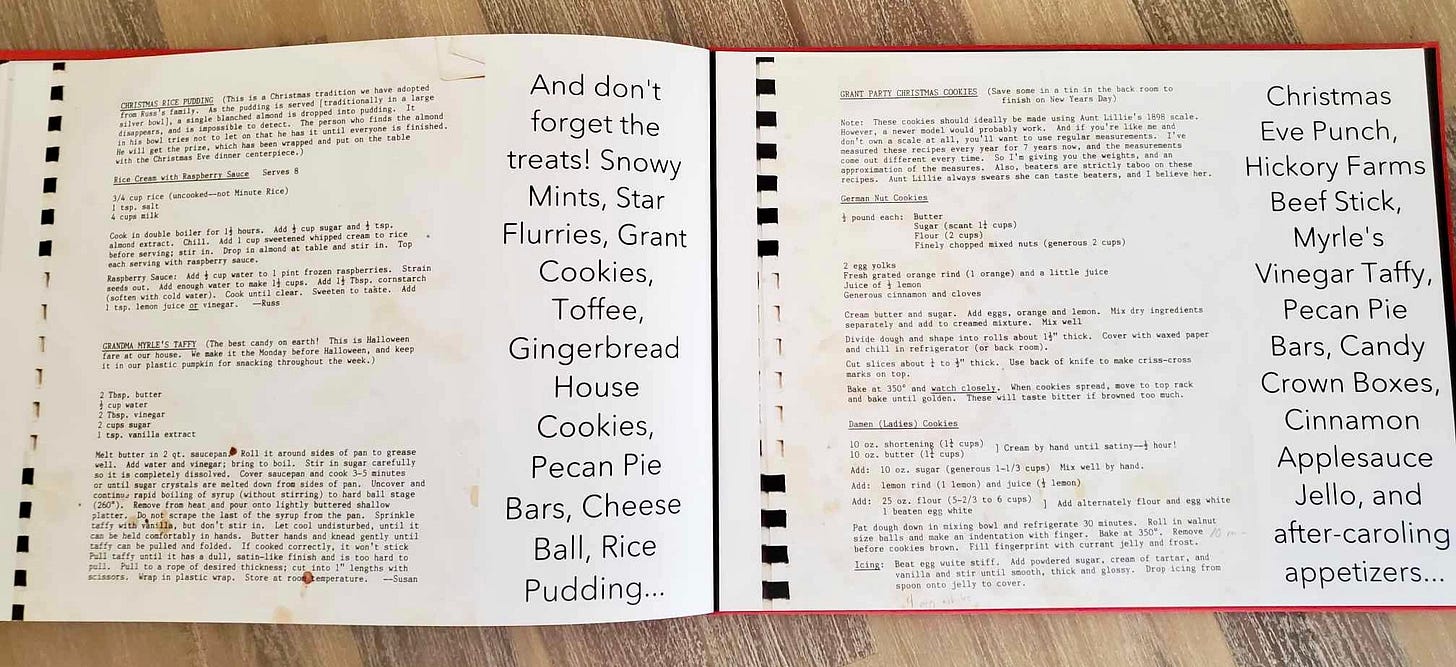 CHRISTMAS RICE PUDDING (This is a Christmas tradition we have adopted
from Russ's family. As the pudding is served [traditionally in a large
silver bowl], a single blanched almond is dropped into pudding. It
disappears, and is impossible to detect. The person who finds the almond
in his bowl tries not to let on that he has it until everyone is finished.
He will get the prize, which has been wrapped and put on the table
with the Christmas Eve dinner centerpiece.)
Rice Cream with Raspberry Sauce Serves 8
3/4 cup rice (uncooked--not Minute Rice)
1 tsp. salt
4 cups milk
Cook in double boiler for 1½ hours. Add ½ cup sugar and ½ tsp.
almond extract. Chill. Add 1 cup sweetened whipped cream to rice
before serving; stir in. Drop in almond at table and stir in. Top
each serving with raspberry sauce.
Raspberry Sauce: Add ½ cup water to 1 pint frozen raspberries. Strain
seeds out. Add enough water to make 1½ cups. Add 1½ Tbsp. cornstarch
(soften with cold water). Cook until clear. Sweeten to taste. Add
1 tsp. lemon juice or vinegar. --Russ
GRANDMA MYRLE'S TAFFY (The best candy on earth! This is Halloween
fare at our house. We make it the Monday before Halloween, and keep
it in our plastic pumpkin for snacking throughout the week.)
2 Tbsp. butter
½ cup water
2 Tbsp. vinegar
2 cups sugar
1 tsp. vanilla extract
Melt butter in 2 qt. saucepan. Roll it around sides of pan to grease
well. Add water and vinegar; bring to boil. Stir in sugar carefully
so it is completely dissolved. Cover saucepan and cook 3-5 minutes
or until sugar crystals are melted down from sides of pan. Uncover and
continue rapid boiling of syrup (without stirring) to hard ball stage
(260°). Remove from heat and pour onto lightly buttered shallow
platter. Do not scrape the last of the syrup from the pan. Sprinkle
taffy with vanilla, but don't stir in. Let cool undisturbed, until it
can be held comfortably in hands. Butter hands and knead gently until
taffy can be pulled and folded. If cooked correctly, it won't stick
Pull taffy until it has a dull, satin-like finish and is too hard to
pull. Pull to a rope of desired thickness; cut into 1" lengths with
scissors. Wrap in plastic wrap. Store at room temperature. --Susan
And don't
forget the
treats! Snowy
Mints, Star
Flurries, Grant
Cookies,
Toffee,
Gingerbread
House
Cookies,
Pecan Pie
Bars, Cheese
Ball, Rice
Pudding...
GRANT PARTY CHRISTMAS COOKIES (Save some in a tin in the back room to
finish on New Years Day)
Note: These cookies should ideally be made using Aunt Lillie's 1898 scale.
However, a newer model would probably work. And if you're like me and
don't own a scale at all, you'll want to use regular measurements. I've
measured these recipes every year for 7 years now, and the measurements
come out different every time. So I'm giving you the weights, and an
approximation of the measures. Also, beaters are strictly taboo on these
recipes. Aunt Lillie always swears she can taste beaters, and I believe her.
German Nut Cookies
½ pound each: Butter
Sugar (scant 1¼ cups)
Flour (2 cups)
Finely chopped mixed nuts (generous 2 cups)
2 egg yolks
Fresh grated orange rind (1 orange) and a little juice
Juice of ½ lemon
Generous cinnamon and cloves
Cream butter and sugar. Add eggs, orange and lemon. Mix dry ingredients
separately and add to creamed mixture. Mix well
Divide dough and shape into rolls about 1½" thick. Cover with waxed paper
and chill in refrigerator (or back room).
Cut slices about ¼ to ½" thick. Use back of knife to make criss-cross
marks on top.
Bake at 350° and watch closely. When cookies spread, move to top rack
and bake until golden. These will taste bitter if browned too much.
Damen (Ladies) Cookies
10 oz. shortening (1¼ cups)
10 oz. butter (1¼ cups) ] Cream by hand until satiny--½ hour!
Add: 10 oz. sugar (generous 1-1/3 cups) Mix well by hand.
Add: lemon rind (1 lemon) and juice (½ lemon)
Add: 25 oz. flour (5-2/3 to 6 cups)
1 beaten egg white ] Add alternately flour and egg white
Pat dough down in mixing bowl and refrigerate 30 minutes. Roll in walnut
size balls and make an indentation with finger. Bake at 350°. Remove
before cookies brown. Fill fingerprint with currant jelly and frost.
Icing: Beat egg white stiff. Add powdered sugar, cream of tartar, and
vanilla and stir until smooth, thick and glossy. Drop icing from
spoon onto jelly to cover.
Christmas
Eve Punch,
Hickory Farms
Beef Stick,
Myrle's
Vinegar Taffy,
Pecan Pie
Bars, Candy
Crown Boxes,
Cinnamon
Applesauce
Jello, and
after-caroling
appetizers...